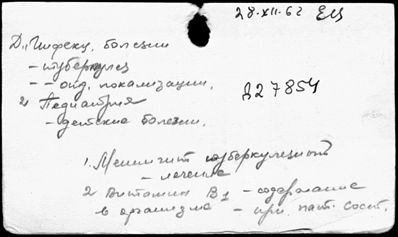 28-XII-62 ЕЦ
Д. Инфекц. болезни
- туберкулез
- - отд. локализации.
Д27854
2) Педиатрия
- детские болезни.
1. Менингит туберкулезный
- лечение
2 Витамин B1 - содержание
в организме - при пат. сост.